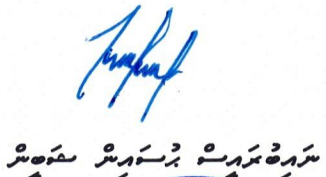 ނައިބުރައީސް ޙުސައިން ޝަބީން